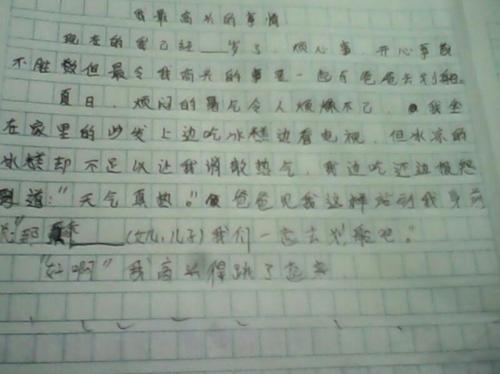 我最高兴的事情
现在的我已经___岁了，烦心事，开心事数
不胜数但最令我高兴的事是一起与爸爸去划船。
夏日，烦闷的暑气令人烦燥不已，我坐
在家里的沙发上边吃冰糕边看电视，但冰凉的
冰糕却不足以让我消散热气，我边吃还边抱怨
道："天气真热。"爸爸见我这样站到我身前
"那___(女儿，儿子)我们一起去划船吧。"
"好啊"我高兴得跳了起来